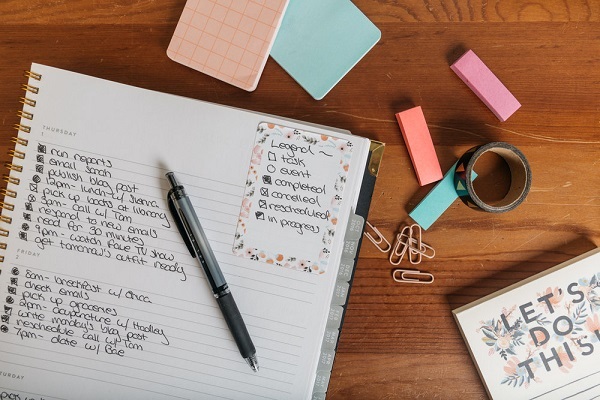 THURSDAY
1
run reports
email Sarah
publish blog post
12pm - lunch w/ Shana
pick up books at library
3pm - call w/ Tam
respond to new emails
read for 30 minutes
9pm - watch fave TV show
get tomorrow's outfit ready
FRIDAY
2
8am - breakfast w/ Erica
check emails
pick up groceries
2pm - acupuncture w/ Hadley
write monday's blog post
reschedule call w/ Tam
7pm - date w/ Bae
Legend
task
event
completed
cancelled
rescheduled
in progress
LET'S
DO
THIS!